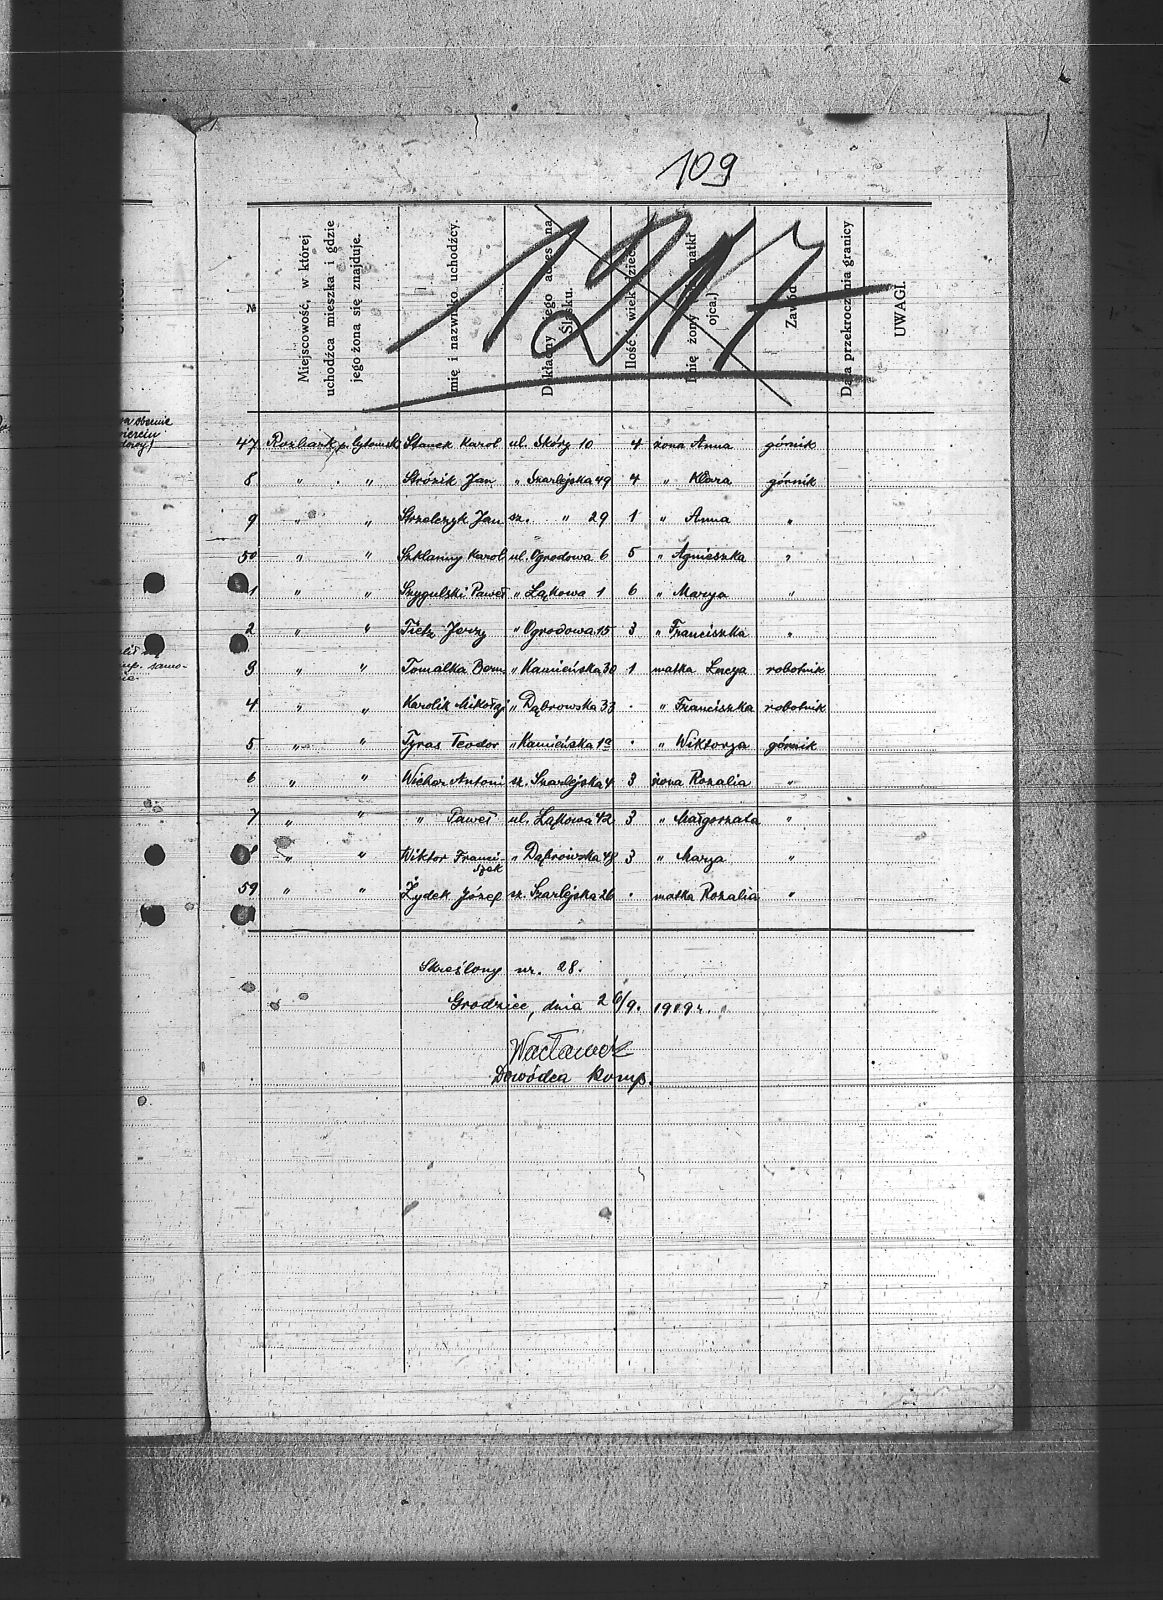 109
1217
№
Miejscowość, w której
uchodźca mieszka i gdzie
jego żona się znajduje.
mię i nazwisko uchodźcy.
Dokładny jego adres na
Śląsku.
Ilość i wiek dzieci
Imię żony matki
ojca.)
Zawód
Data przekroczenia granicy
UWAGI.
47 Rozbark p. bytomski Stanek Karol ul. Skórz 10 4 żona Anna górnik
8 " " Stróżik Jan " Szarlejska 49 4 " Klara górnik
9 " " Strzelczyk Jan sz. " 29 1 " Anna "
50 " " Szklanny Karol ul. Ogrodowa 6 5 " Agnieszka "
1 " " Szygulski Paweł " Łąkowa 1 6 " Marya "
2 " " Tietz Jerzy " Ogrodowa 15 3 " Franciszka "
3 " " Tomalka Bern. " Kamieńska 30 1 matka Lucya robotnik
4 " " Karolik Mikołaj " Dąbrowska 33 . " Franciszka robotnik
5 " " Tyras Teodor " Kamieńska 19 . " Wiktorya górnik
6 " " Wichor Antoni sz. Szarlejska 4 3 żona Rozalia "
7 " " " Paweł ul. Łąkowa 42 3 " Małgorzata "
" " Wiktor Franci-
szek " Dąbrowska 48 3 " Marya "
59 " " Żydek Józef sz. Szarlejska 26 . matka Rozalia "
Skreślony nr. 28.
Grodziec, dnia 26/9. 1919 r.
Wacławek
Dowódca Komp.